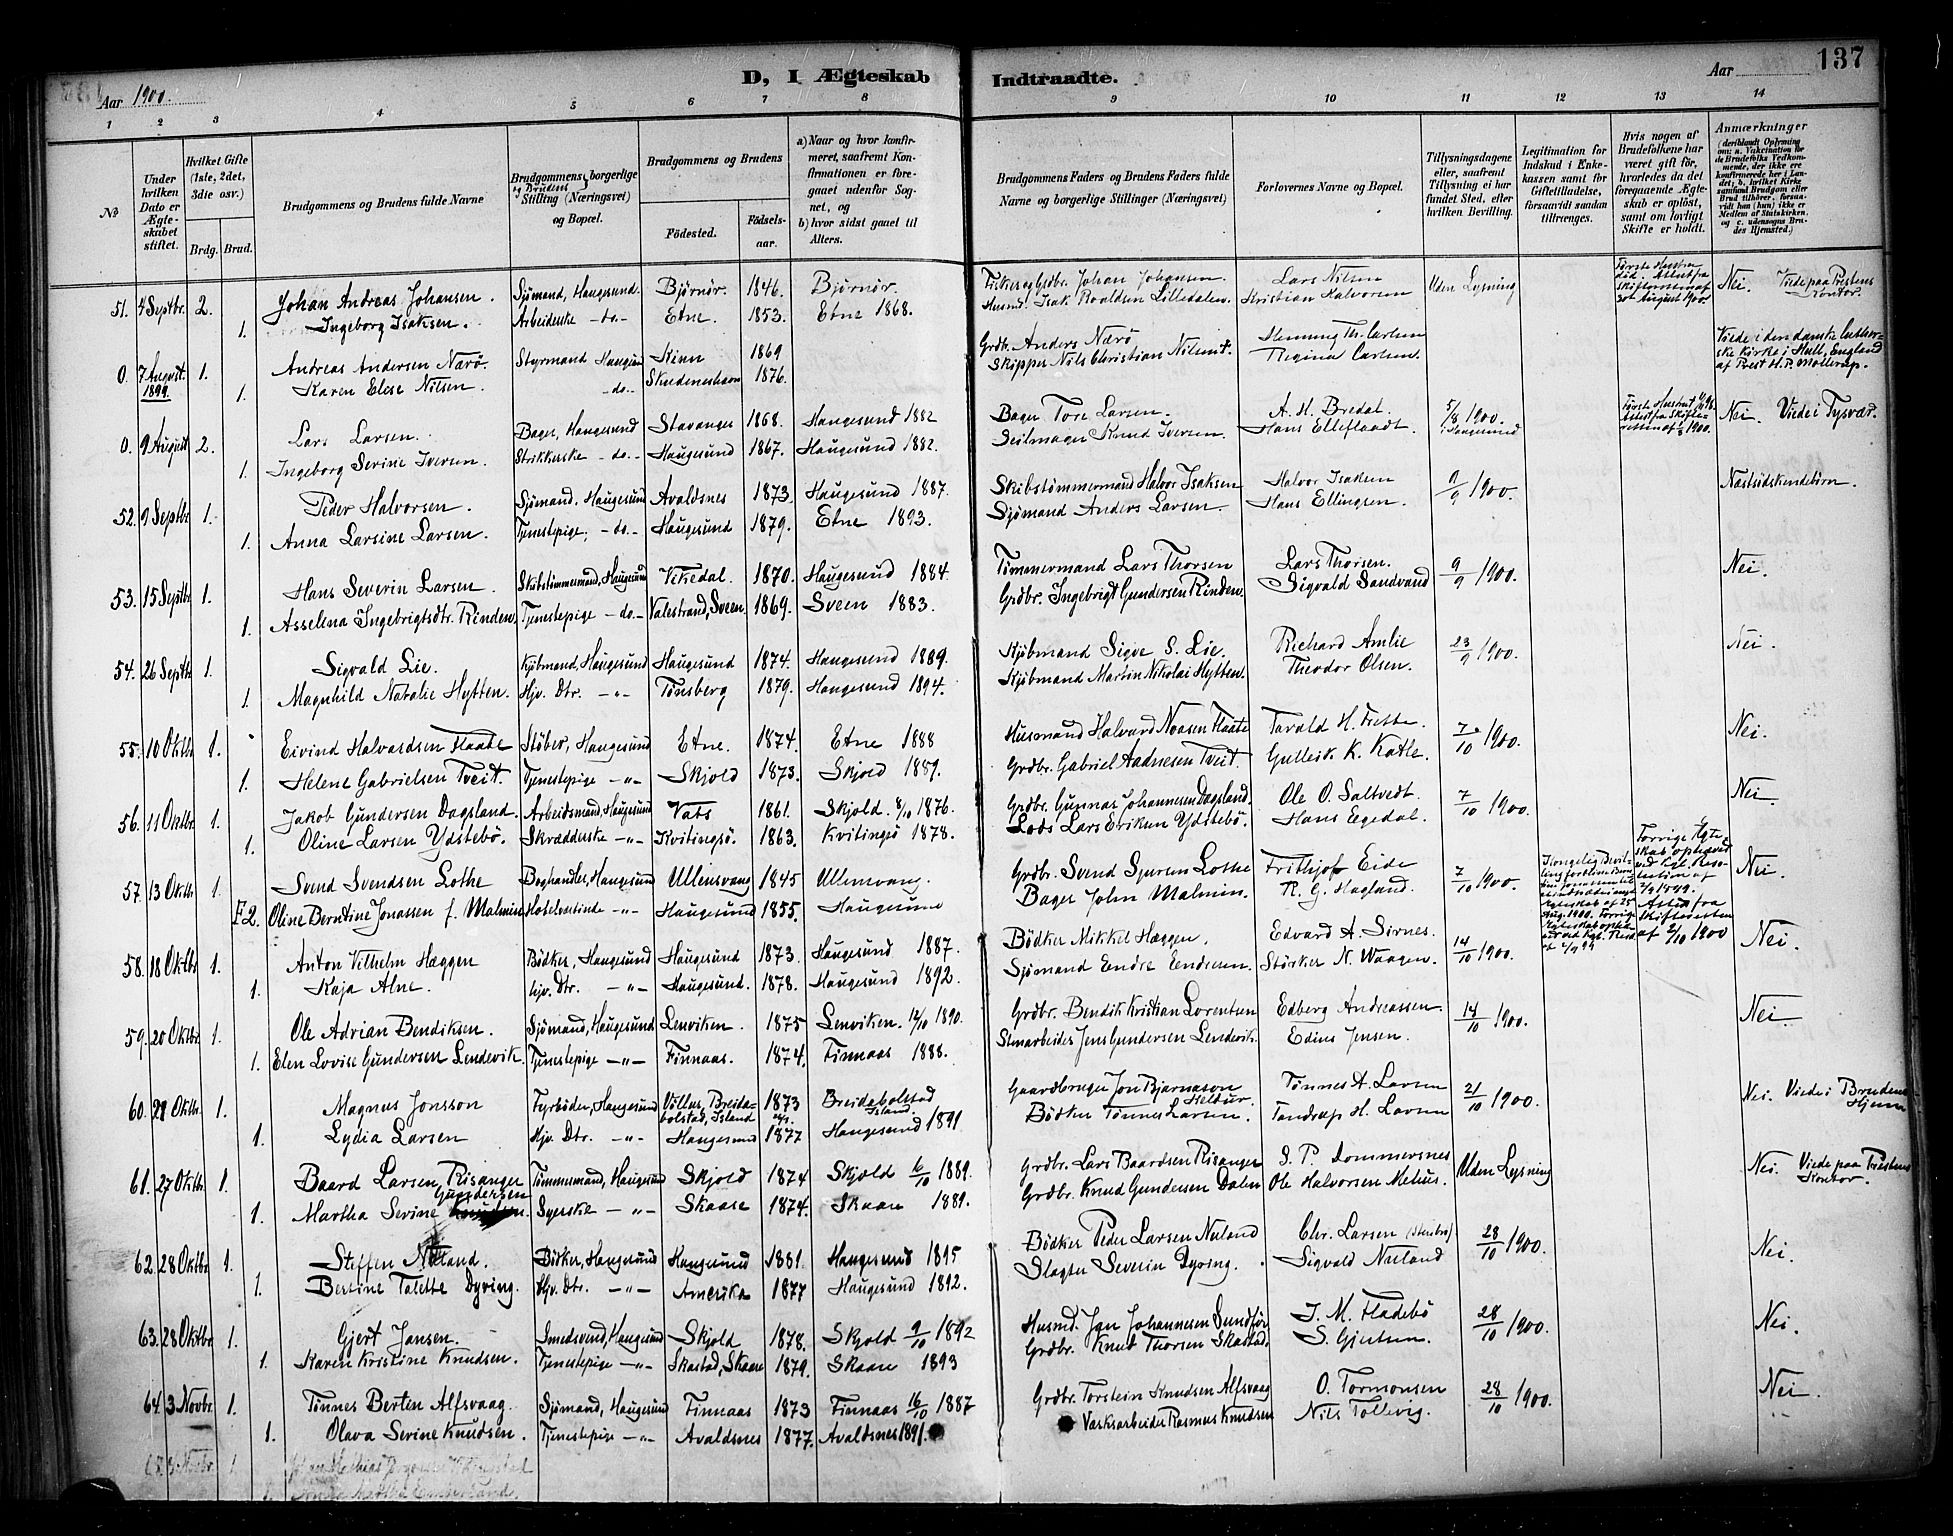 D, I Ægteskab Indtraadte.
Aar 1900.
Aar 137
1 2 3 4 5 6 7 8 9 10 11 12 13 14
№
Under hvilken Dato er Ægteskabet stiftet.
Hvilket Gifte (1ste, 2det, 3die osv.)
Brdg. Brud.
Brudgommens og Brudens fulde Navne
Brudgommens og Brudens borgerlige Stilling (Næringsvei) og Bopæl.
Brudgommens og Brudens
Födested. Födsels-aar.
a) Naar og hvor konfirmeret, saafremt Konfirmationen er foregaaet udenfor Sognet, og
b) hvor sidst gaaet til Alters.
Brudgommens Faders og Brudens Faders fulde Navne og borgerlige Stillinger (Næringsvei)
Forlovernes Navne og Bopæl.
Tillysningsdagene eller, saafremt Tillysning ei har fundet Sted, efter hvilken Bevilling.
Legitimation for Indskud i Enkekassen samt for Giftetilladelse, forsaavidt saadan tiltrænges.
Hvis nogen af Brudefolkene har været gift för, hvorledes da det foregaaende Ægteskab er oplöst, samt om lovligt Skifte er holdt.
Anmærkninger
51. 4 Septbr. 2. Johan Andreas Johansen. Sjömand, Haugesund. Bjørnør. 1846. Bjørnør. Fisker og Grdbr. Johan Johansen. Lars Nilsen Uden Lysning Første Hustru död. Attest fra Skifteretten af 30te August 1900. Nei. Viede paa Prestens Kontor.
1. Ingeborg Isaksen. Arbeiderske -do- Etne. 1853. Etne 1868. Husmd. Isak Roaldsen Lilledalen. Kristian Halvorsen
0. 7 August. 1899. 1. Andreas Andersen Narö. Styrmand Kinn 1869 Grdbr. Anders Narö Henning Th. Carlsen Viede i den danske lutherske Kirke i Hull, England af Prest H. P. Mollerup.
1. Karen Elese Nilsen. -do- Skudeneshavn 1876. Skipper Nils Christian Nilsen. Regina Carlsen.
0. 9 August 2. Lars Larsen. Bager, Haugesund Stavanger 1868. Haugesund 1882 Bager Tore Larsen. A. H. Bredal. 5/8 1900. i Haugesund Nei. Viede i Tysvær.
1. Ingeborg Serine Iversen. Strikkerske -do- Haugesund 1867. Haugesund 1882. Seilmager Knud Iversen. Hans Elleflaadt.
52. 9 Septbr. 1. Peder Halvorsen. Sjömand. Haugesund Avaldsnes 1873. Haugesund 1887. Skibstömmermand Halvor Isaksen Halvor Isaksen 9/9 1900. Næstsödskendebörn.
1. Anna Larsine Larsen. Tjenestepige, -do- Haugesund 1879. Etne 1893. Sjömand Anders Larsen. Hans Ellingsen.
53. 15 Septbr. 1. Hans Severin Larsen. Skibstömmermand, Haugesund Vikedal. 1870. Haugesund 1884. Tömmermand Lars Thorsen Lars Thorsen. 9/9 1900. Nei.
1. Asselina Ingebrigtsdtr. Rinden. Tjenestepige -do- Valestrand, Sveen. 1869. Sveen 1883. Grdbr. Ingebrigt Gundersen Rinden. Sigvald Sandvand
54. 26 Septbr. 1. Sigvald Lie. Kjöbmand, Haugesund Haugesund 1874. Haugesund 1889. Kjöbmand Sigve S. Lie. Richard Amlie 23/9 1900. Nei.
1. Magnhild Natalie Hytten. Hjv. Dtr. -"- Tönsberg 1879. Haugesund 1894. Kjöbmand Martin Nikolai Hytten. Theodor Olsen.
55. 10 Oktbr. 1. Eivind Halvardsen Flaate Stöber, Haugesund Etne. 1874. Etne 1888 Husmand Halvard Noasen Flaate Tarald H. Frette. 7/10 1900. Nei.
1. Helene Gabrielsen Tveit. Tjenestepige -"- Skjold 1873. Skjold 1889. Grdbr. Gabriel Aadnesen Tveit. Gullesik K. Katle.
56. 11 Oktbr. 1. Jakob Gundersen Dagsland. Arbeidsmand, Haugesund Vats 1861. Skjold. 8/10 1876. Grdbr. Gunnar Johannesen Dagsland. Ole O. Saltvedt. 7/10 1900. Nei.
1. Oline Larsen Ydstebö. Skrædderske -"- Kvitingsö. 1863. Kvitingsö 1878. Lods Lars Eriksen Ydstebö. Hans Egedal.
57. 13 Oktbr. 1. Svend Svendsen Lothe Boghandler, Haugesund Ullensvang 1845 Ullensvang. Grdbr. Svend Sjursen Lothe Frithjof Eide 7/10 1900. Nei.
F2. Oline Berntine Jonassen f. Malmin Hotelvertinde -"- Haugesund 1855. Haugesund Bager John Malmin. R. G. Hagland.
Forrige Ægteskab ophævet ved Kgl. Resolution af Attest fra Skifteretten af 2/10 1900
58. 18 Oktbr. 1. Anton Vilhelm Hæggen Bödker, Haugesund Haugesund 1873. Haugesund 1887. Bödker Mikkel Hæggen. Edvard A. Sirnes. 14/10 1900. Nei.
1. Kaja Alne. hjv. Dtr. -"- Haugesund. 1878. Haugesund 1892. Sjömand Endre Endresen. Störker N. Waagen.
59. 20 Oktbr. 1. Ole Adrian Bendiksen. Sjömand, Haugesund Lenviken. 1875 Lenviken. 12/10 1890. Grdbr. Bendik Kristian Lorentsen Edberg Andreassen. 14/10 1900. Nei.
1. Elen Lovise Gundersen Lendevik. Tjenestepige -"- Finnaas. 1874. Finnaas 1888. Stenarbeider Jens Gundersen Lendevik. Edius Jensen.
60. 21 Oktbr. 1. Magnus Jonsson Fyrböder, Haugesund Völlus, Breidabolstad, Island 1873 Breidabolstad Island. Gaardbruger Jon Bjarnason Tönnes A. Larsen 21/10 1900. Nei. Viede i Brudens Hjem
1. Lydia Larsen Hjv. Dtr. -"- Haugesund 1877 Haugesund 1891 Bödker Tönnes Larsen. Tandrup H. Larsen
61. 27 Oktbr. 1. Baard Larsen Risanger Tömmermand, Haugesund Skjold 1874 Skjold 6/10 1889. Grdbr. Lars Baardsen Risanger S. P. Dommersnes Uden Lysning Nei. Viede paa Prestens Kontor.
1. Martha Serine Gundersen Syerske -"- Skaare 1874. Skaare 1889. Grdbr. Knud Gundersen Dalen Ole Halvorsen Melius.
62. 28 Oktbr. 1. Steffen Nuland. Bödker, Haugesund Haugesund 1881. Haugesund 1895 Bödker Peder Larsen Nuland Chr. Larsen 28/10 1900. Nei.
1. Bertine Talette Dyring. Hjv. Dtr. -"- Amerika 1877 Haugesund 1892. Slagter Severin Dyring. Sigvald Nuland
63. 28 Oktbr. 1. Gjert Jansen. Smedsvend, Haugesund Skjold 1878. Skjold 9/10 1892 Husmd. Jan Johannesen Sundför J. M. Fladebö 28/10 1900. Nei.
1. Karen Kristine Knudsen. Tjenestepige -"- Skastad, Skaare 1879. Skaare 1893 Grdbr. Knut Thorsen Skastad. S. Gjertsen.
64. 3 Novbr. 1. Tönnes Bertin Alfsvaag. Sjömand, Haugesund Finnaas 1873 Finnaas 16/10 1887 Grdbr. Torstein Knudsen Alfsvaag O. Tormonsen 28/10 1900. Nei.
1. Olava Serine Knudsen. Tjenestepige -"- Avaldsnes 1877. Avaldsnes 1891. Værksarbeider Rasmus Knudsen Nils Tollevig.